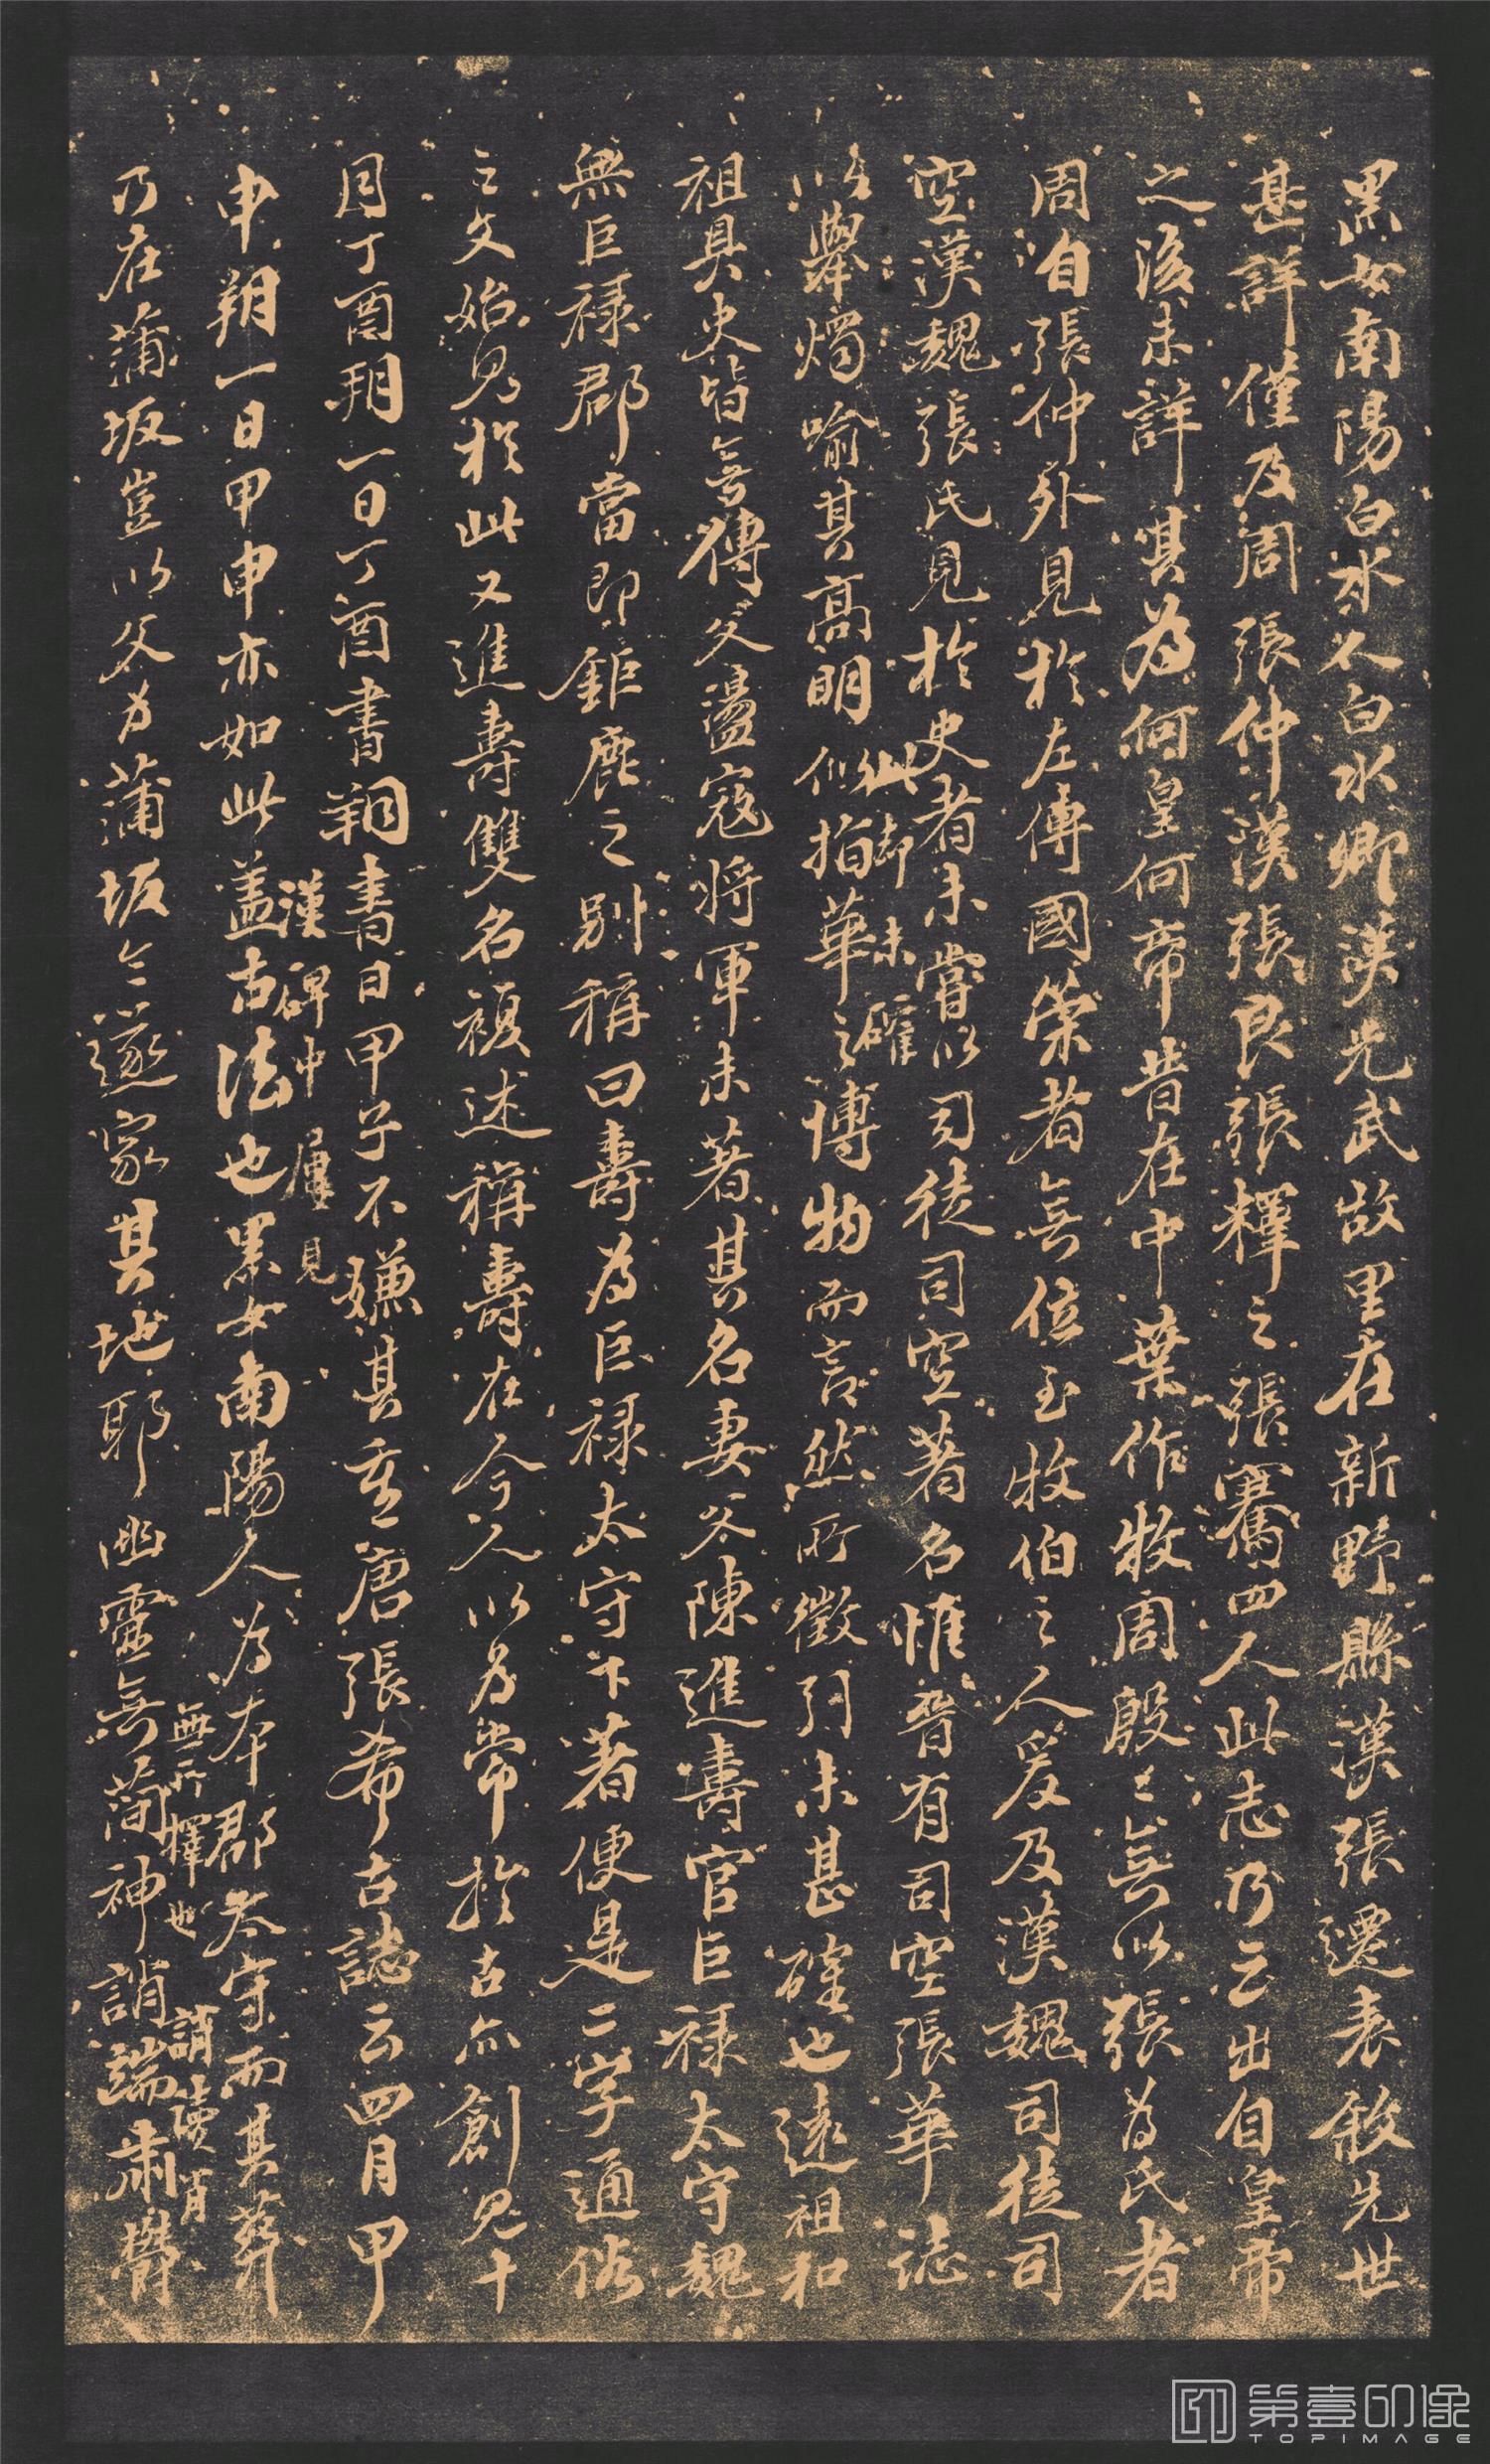 黑女南陽白水人白水鄉漢光武故里在新野縣漢張遷表敘先世
甚詳僅及周張仲漢張良張釋之張騫四人此志乃云出自皇帝
之後未詳其為何皇何帝昔在中葉作牧周殷之無以張為氏者
周自張仲外見於左傳國策者無位至牧伯之人爰及漢魏司徒司
空漢魏張氏見於史者未嘗以司徒司空著名惟晉有司空張華誌
以舉燭喻其高明似指華之博物而言然所徵引未甚確也遠祖和
此却未確
祖具史皆無傳父盪寇將軍未著其名妻父陳進壽官巨祿太守魏
無巨祿郡當即鉅鹿之別稱曰壽為巨祿太守下著便是二字通俗
之文始見於此又進壽雙名複述稱壽在今人以為常於古亦創見十
月丁酉朔一日丁酉書朔書日甲子不嫌其重唐張希古誌云四月甲
漢碑中屢見
申朔一日甲申亦如此蓋古法也黑女南陽人為本郡太守而其葬
無所擇也
誚讀肖
乃在蒲坂豈以父為蒲坂令遂家其地耶幽靈無簡神誚端肅鬱
第壹印像
TOPIMAGE